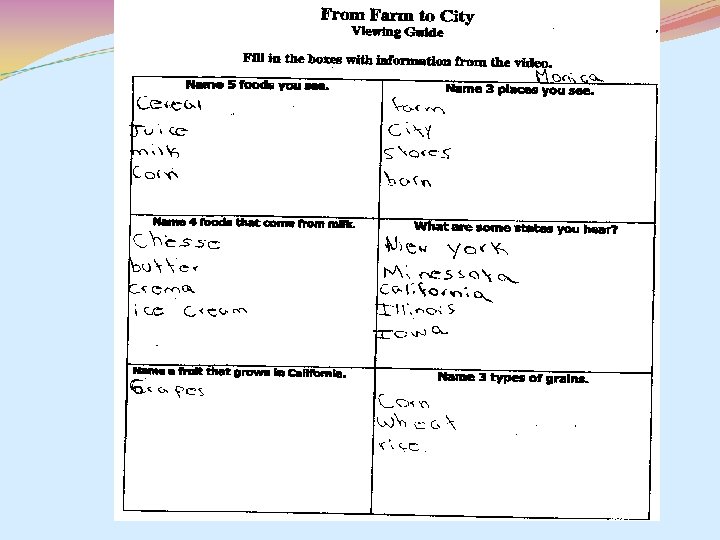 From Farm to City
Viewing Guide
Fill in the boxes with information from the video.
Monica
Name 5 foods you see.
Cereal
Juice
milk
Corn
Name 3 places you see.
farm
City
stores
barn
Name 4 foods that come from milk.
Chesse
butter
crema
ice cream
What are some states you hear?
New york
Minessota
california
Illinois
Iowa
Name a fruit that grows in California.
Grapes
Name 3 types of grains.
Corn
wheat
rice.